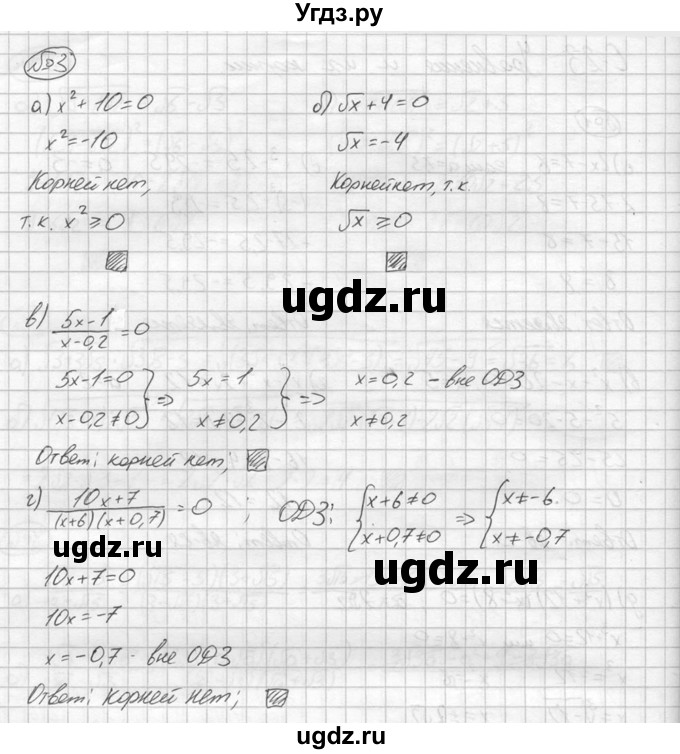 Угдз.ру
№3
а) x² + 10 = 0
x² = -10
Корней нет,
т.к. x² ≥ 0
б) √x + 4 = 0
√x = -4
Корней нет, т.к.
√x ≥ 0
ugdz.ru
в) (5x-1)/(x-0,2) = 0
5x-1=0
x-0,2≠0 } => 5x = 1
x ≠ 0,2 } => x = 0,2 - вне ОДЗ
x ≠ 0,2
Ответ: корней нет;
г) (10x+7)/((x+6)(x+0,7)) = 0 ; ОДЗ: { x+6 ≠ 0
x+0,7 ≠ 0 => { x ≠ -6
x ≠ -0,7
ugdz.ru
ugdz.ru
10x+7=0
10x = -7
x = -0,7 - вне ОДЗ
Ответ: корней нет;
ugdz.ru